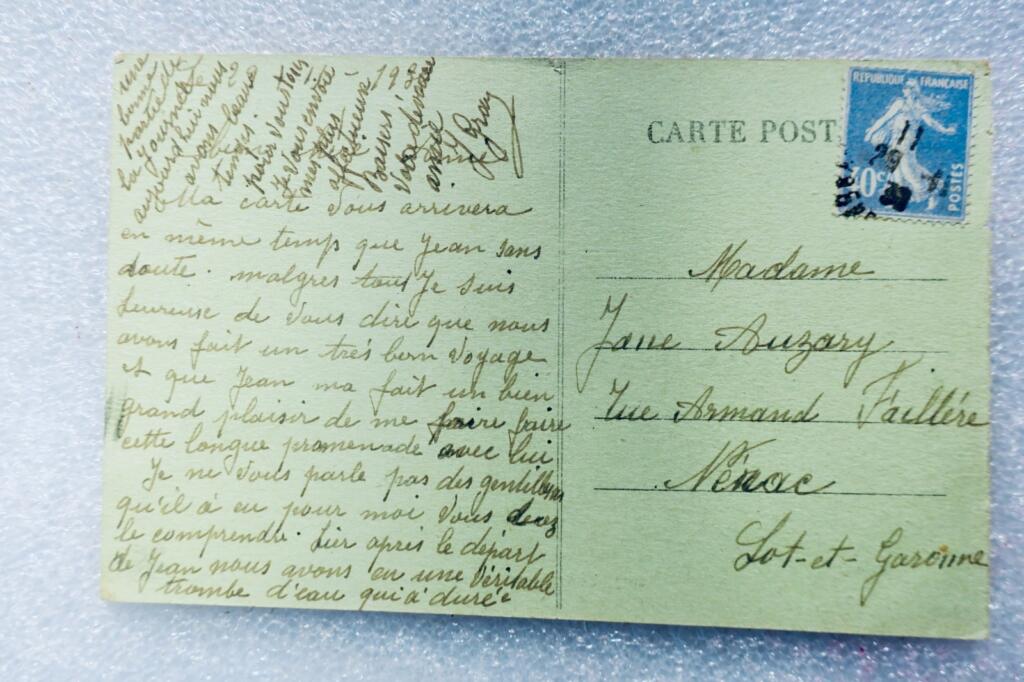 Ma carte Vous arrivera
en même temps que Jean sans
doute. malgres tout Je suis
heureuse de Vous dire que nous
avons fait un très bon Voyage
et que Jean ma fait un bien
grand plaisir de me faire faire
cette longue promenade avec lui
Je ne Vous parle pas des gentillesses
qu'il à eu pour moi Vous devez
le comprendre. hier après le départ
de Jean nous avons eu une Véritable
trombe d'eau qui à durée
une
bonne
partie de
la Journée
aujourd'hui nous
avons beau
temps.
pour Vous tous
et Vous envoie
mes plus
affectueux
Baisers
Votre
amie
Gray
CARTE POST
REPUBLIQUE FRANÇAISE
POSTES
11
29
Madame
Jane Auzary
rue Armand Faillére
Nérac
Lot-et-Garonne